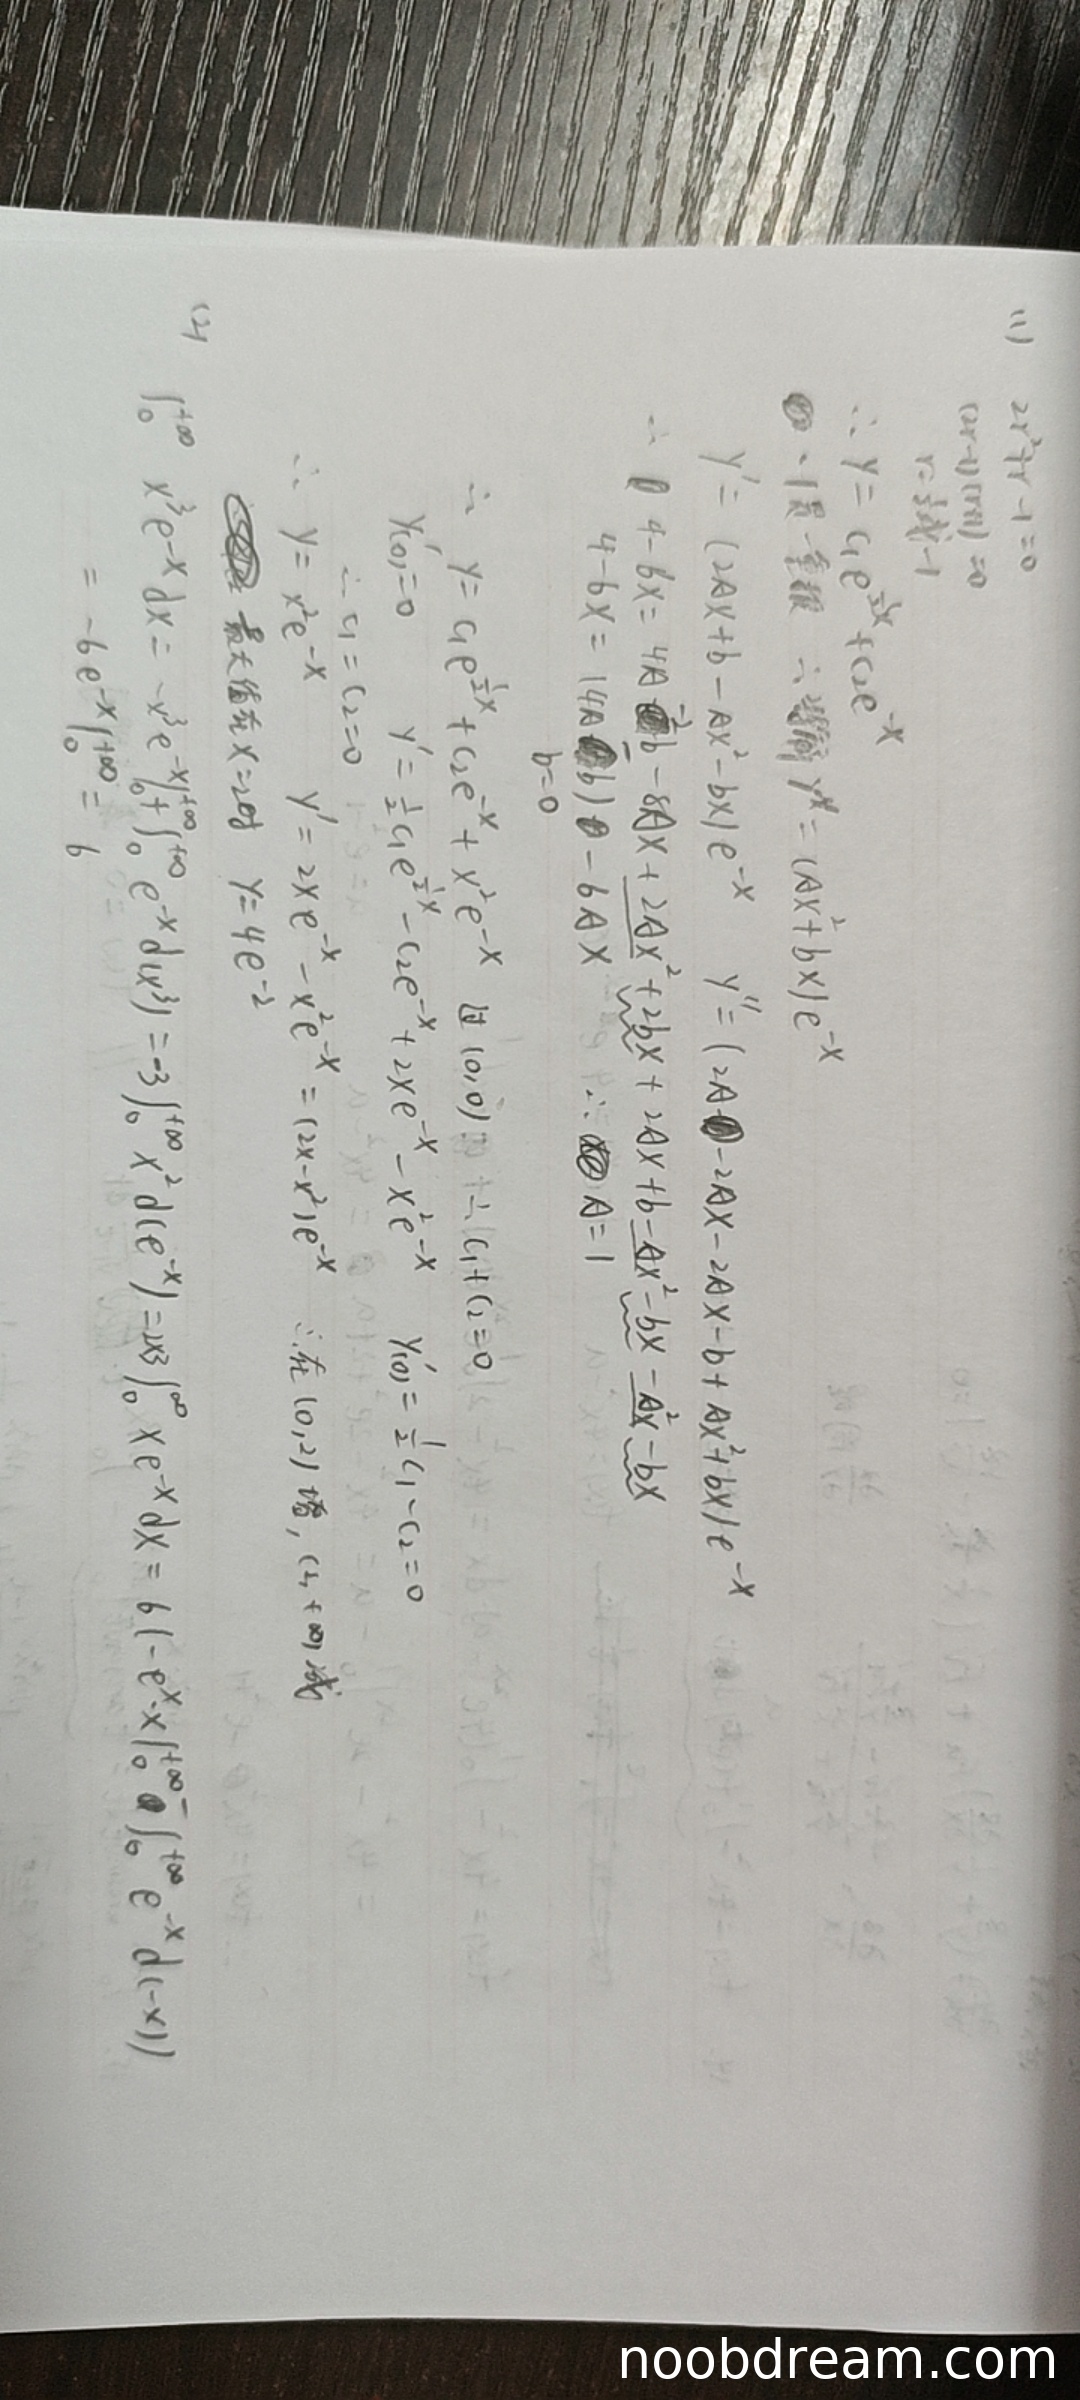 (1) 2r²+r-1=0
(2r-1)(r+1)=0
r=½或-1
∴ y = C₁e^{½x}+C₂e^{-x}
-1是一重根 ∴特解 y* = (Ax²+bx)e^{-x}
y' = (2Ax+b-Ax²-bx)e^{-x} y'' = (2A-2Ax-2Ax-b+Ax²+bx)e^{-x}
∴ 4-6x = 4A-2b-8Ax+2Ax²+2bx+2Ax+b-Ax²-bx-Ax²-bx
4-6x = (4A-b)-6Ax ∴ A=1
b=0
∴ y = C₁e^{½x}+C₂e^{-x}+x²e^{-x} 过(0,0) ∴ C₁+C₂=0
y'(0)=0 y' = ½C₁e^{½x}-C₂e^{-x}+2xe^{-x}-x²e^{-x} y'(0)=½C₁-C₂=0
∴ C₁=C₂=0
∴ y = x²e^{-x} y' = 2xe^{-x}-x²e^{-x} = (2x-x²)e^{-x} ∴在(0,2)增,(2,+∞)减
最大值在x=2时 y=4e^{-2}
(2) ∫₀^{+∞} x³e^{-x}dx = -x³e^{-x}|₀^{+∞}+∫₀^{+∞}e^{-x}d(x³) = -3∫₀^{+∞}x²d(e^{-x}) = 2×3∫₀^{∞}xe^{-x}dx = 6(-e^{-x}·x|₀^{+∞}-∫₀^{+∞}e^{-x}d(-x))
= -6e^{-x}|₀^{+∞} = 6
noobdream.com